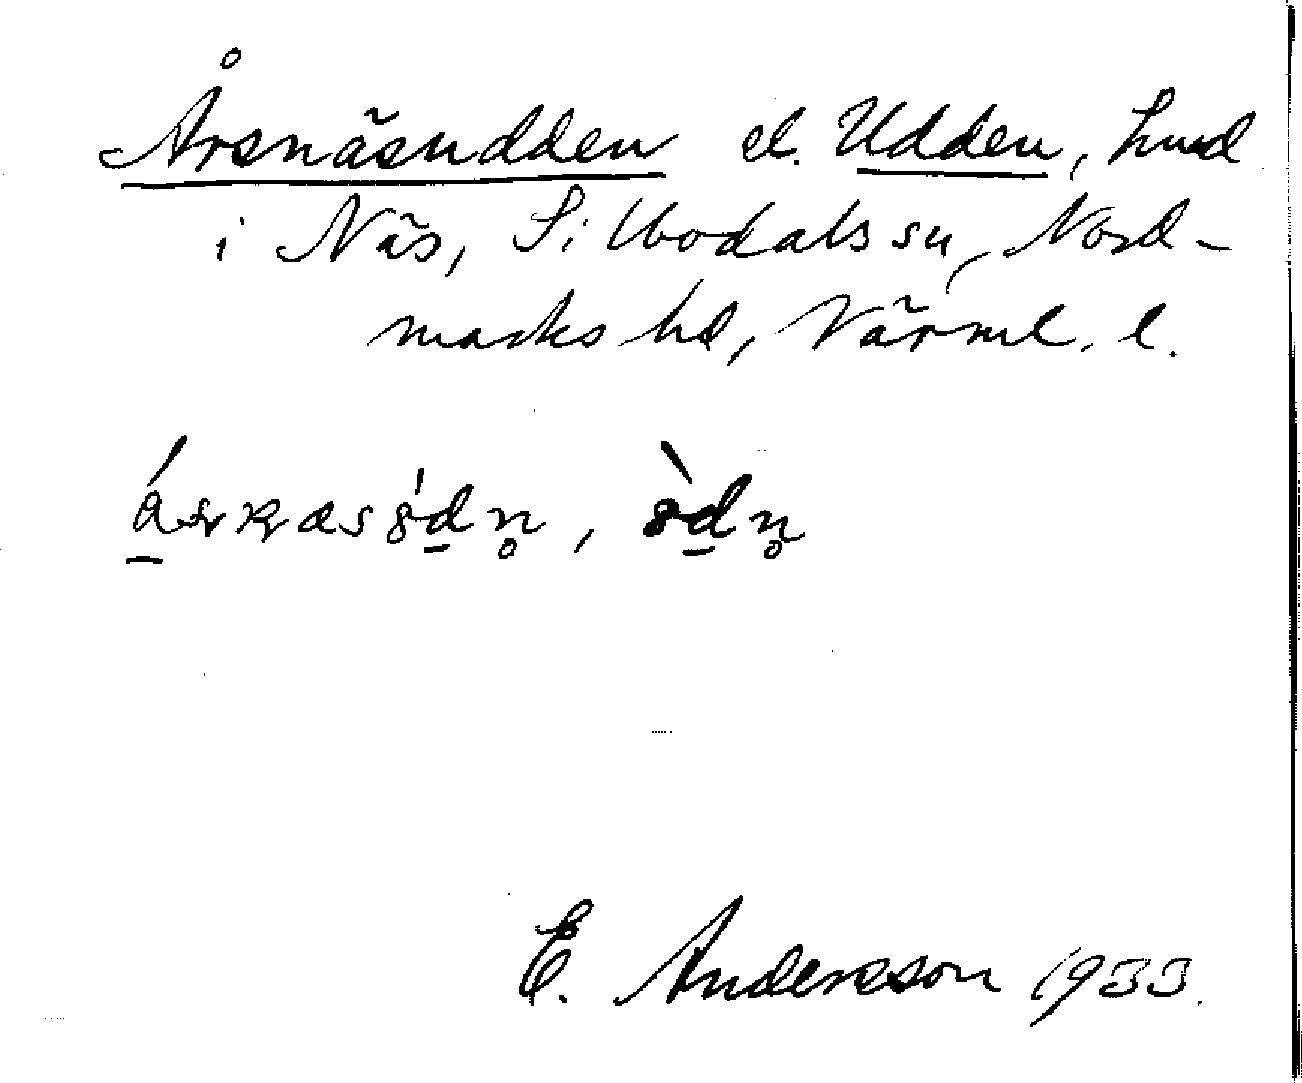 Årsnäsudden el. Udden, hmd
i Näs, Silbodals sn, Nord-
marks hd, Värml. l.
E. Andersson 1933.